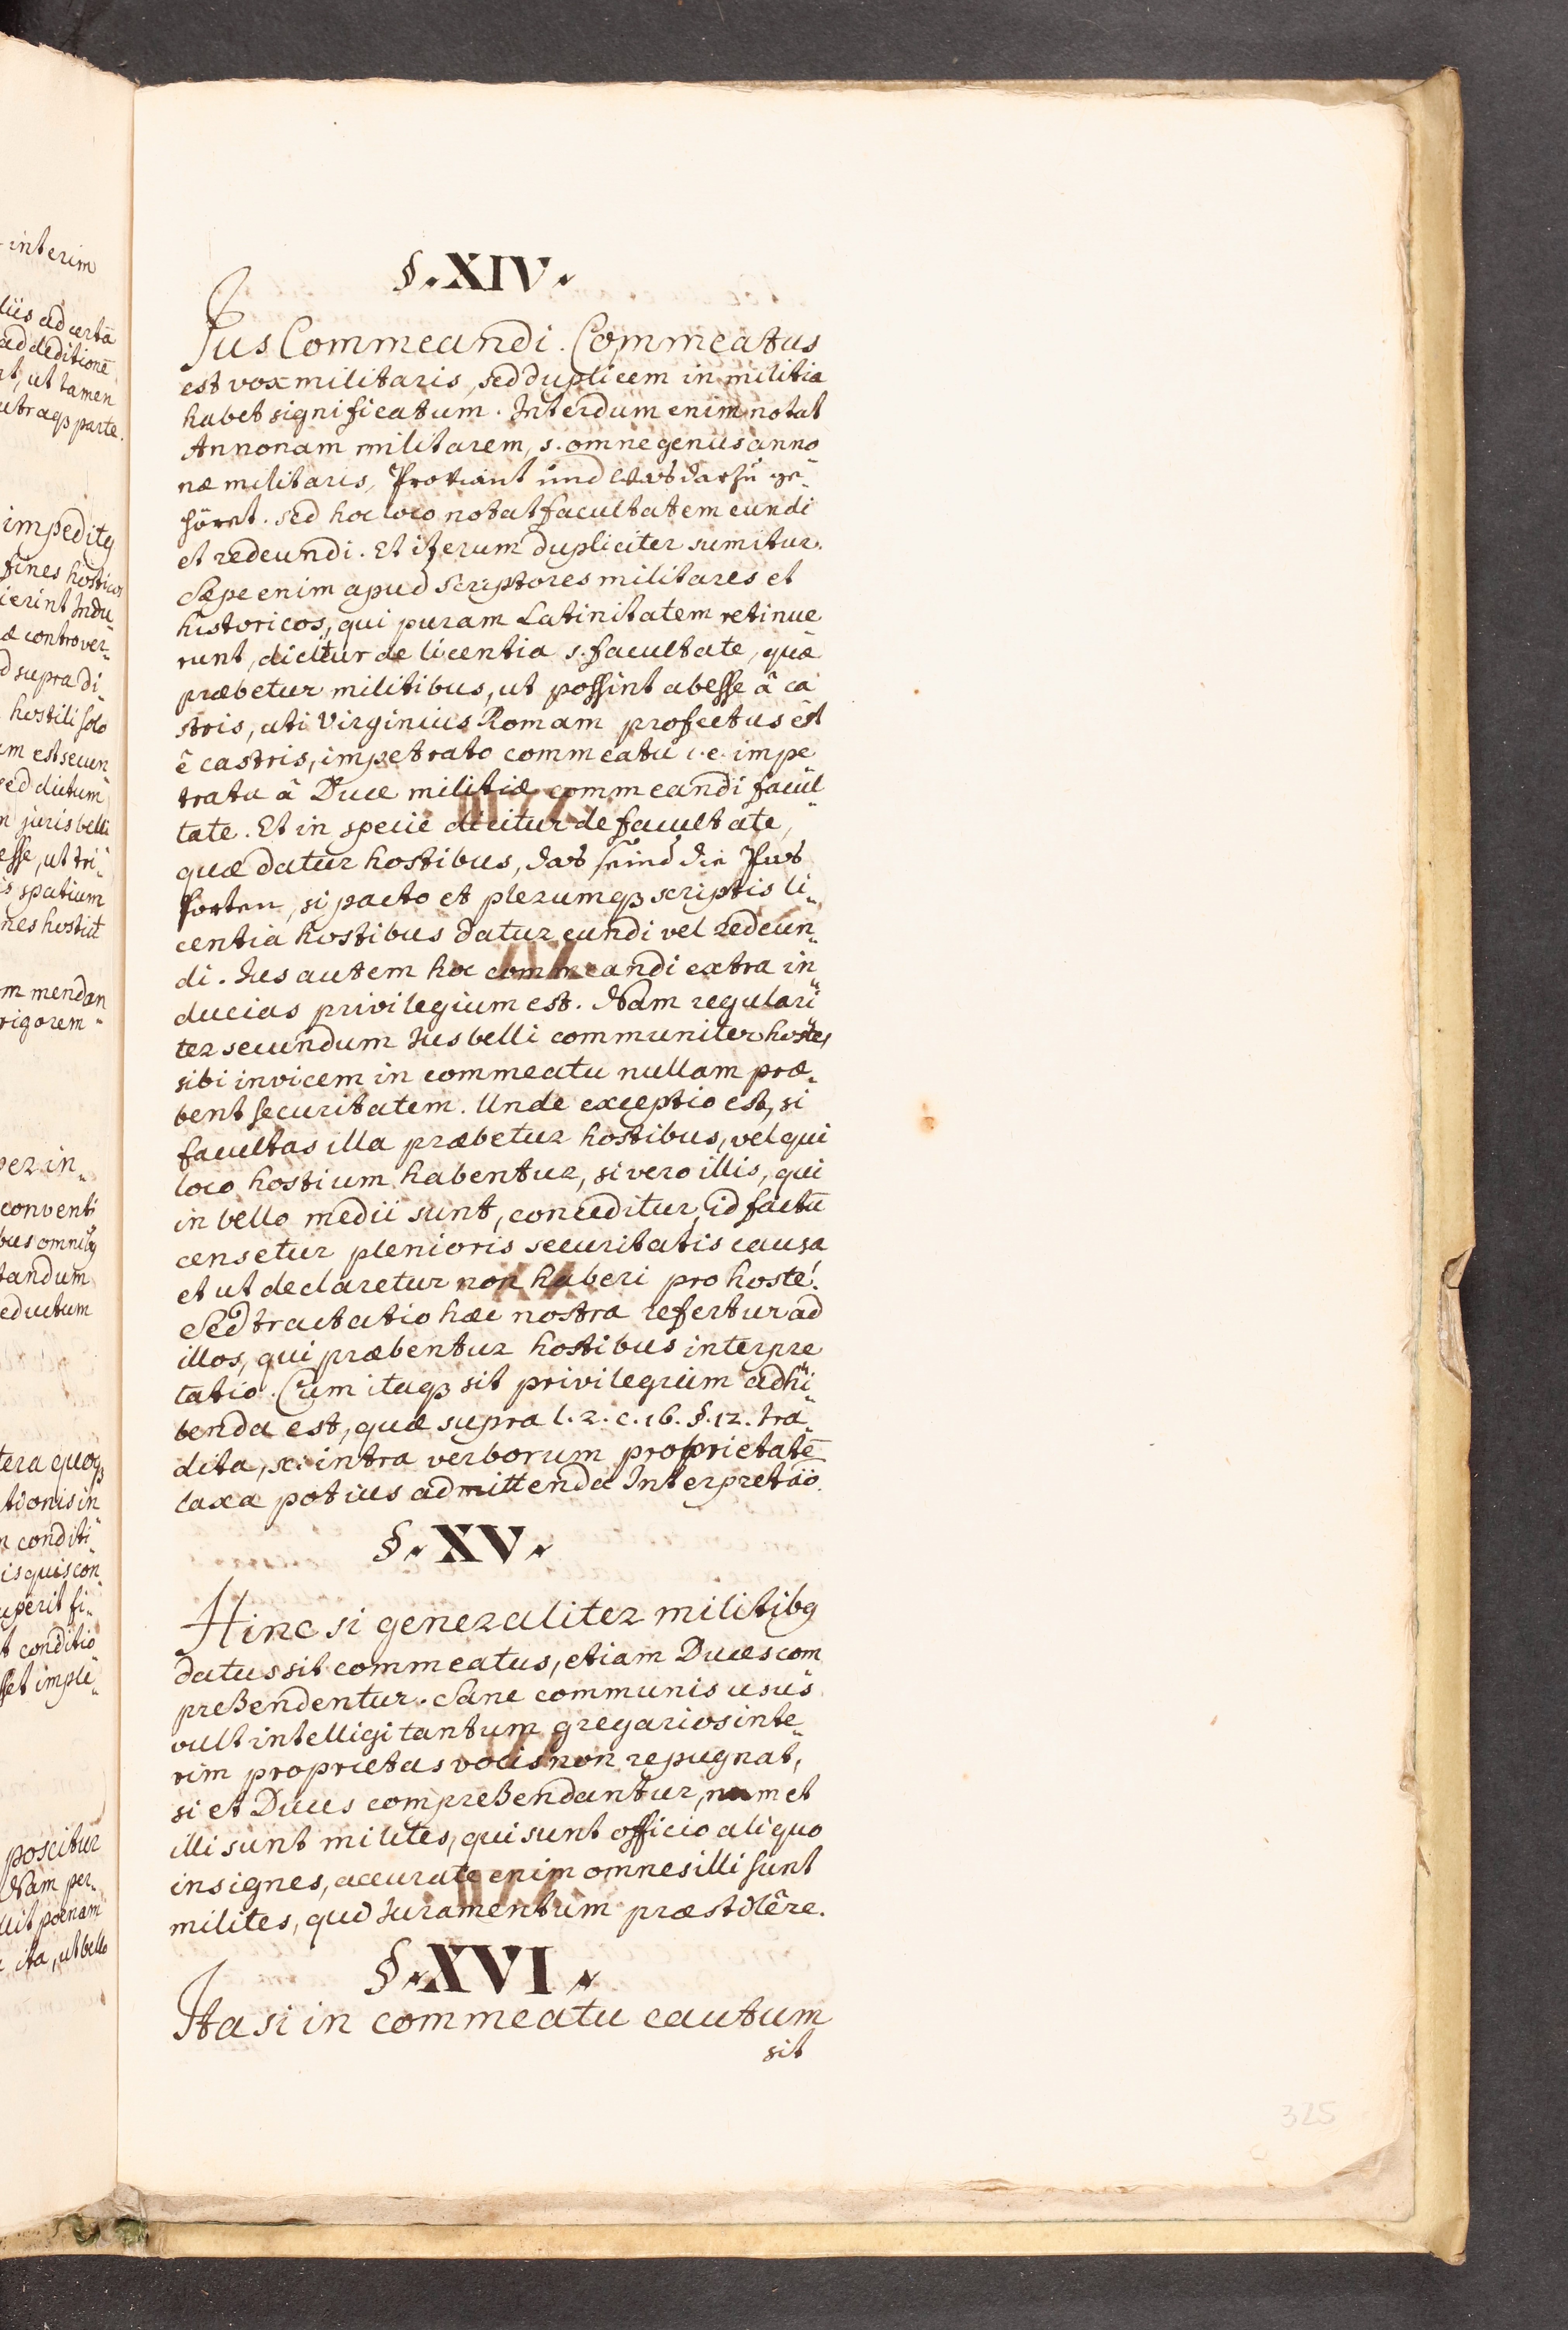 interim
liis ad certā
ad deditionē
ut tamen
utraqꝫ parte.
impeditꝯ
fines hosticos
ierint Indu„
æ controver„
d supra di„
hostili solo
m est secun„
sed dictum
n juris belli
esse, ut tri„
is spatium
nes hostiū
m mendan
rigorem„
per in„
conventi
bus omnibꝯ
tandum
eductum
tera quoqꝫ
tionis in
n conditi„
is quis con„
uperit fi„
t conditio
set imple„
poscitur
Nam per„
uit poenam
ita, ut bello
§. XIV.
Jus Commeandi. Commeatus
est vox militaris, sed duplicem in militia
habet significatum. Interdum enim notat
Annonam militarem, s. omne genus anno
næ militaris, Proviant und was darzu ge„
höret. sed hoc loco notat facultatem eundi
et redeundi. Et iterum dupliciter sumitur.
Sæpe enim apud Scriptores militares et
historicos, qui puram Latinitatem retinue
runt, dicitur de licentia s. facultate, quæ
præbetur militibus, ut possint abesse â ca
stris, uti Virginius Romam profectus est
ê castris, impetrato commeatu i. e. impe
trata â Duce militiæ commeandi facul„
tate. Et in specie dicitur de facultate,
quæ datur hostibus, das seind die Pas
porten, si pacto et plerumqꝫ scriptis li„
centia hostibus datur eundi vel redeun„
di. Jus autem hoc commeandi extra in„
ducias privilegium est. Nam regulari„
ter secundum Jus belli communiter hostes
sibi invicem in commeatu nullam præ„
bent securitatem. Unde exceptio est, si
facultas illa præbetur hostibus, vel qui
loco hostium habentur, si vero illis, qui
in bello medii sunt, conceditur, id factū
censetur plenioris securitatis causa
et ut declaretur non haberi pro hoste.
Sed tractatio hæc nostra refertur ad
illos, qui præbentur hostibus interpre
tatio. Cum itaqꝫ sit privilegium adhi„
benda est, quæ supra l. 2. c. 16. §. 12. tra„
dita, sc. intra verborum proprietatē
laxa potius admittenda Interpretāo.
§. XV.
Hinc si generaliter militibꝯ
datus sit commeatus, etiam Duces com
prehendentur. Sane communis usus
vult intelligi tantum gregarios inte„
rim proprietas vocis non repugnat,
si et Duces comprehendantur, nam et
illi sunt milites, qui sunt officio aliquo
insignes, accurate enim omnes illi sunt
milites, qui Juramentum præstitêre.
§. XVI.
Ita si in commeatu cautum
sit
325